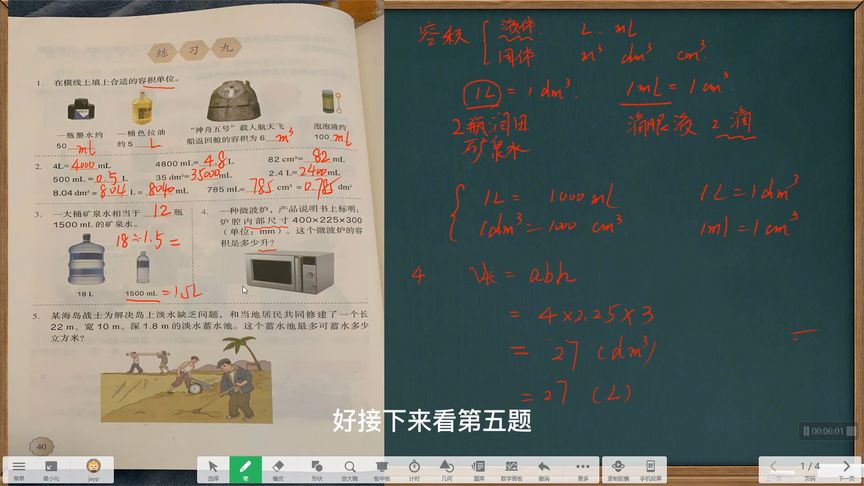 练 习 九
1. 在横线上填上合适的容积单位。
一瓶墨水约
50 mL
一桶色拉油
约 5 L
“神舟五号”载人航天飞
船返回舱的容积为 6 m³
泡泡液约
100 mL
2. 4L= 4000 mL
4800 mL= 4.8 L
82 cm³= 82 mL
500 mL = 0.5 L
35 dm³= 35000 mL
2.4 L= 2400 mL
8.04 dm³= 8.04 L = 8040 mL
785 mL= 785 cm³ = 0.785 dm³
3. 一大桶矿泉水相当于 12 瓶
1500 mL 的矿泉水。
18÷1.5=
18 L
1500 mL =1.5L
4. 一种微波炉，产品说明书上标明：
炉腔内部尺寸 400×225×300
（单位：mm）。这个微波炉的容
积是多少升？
5. 某海岛战士为解决岛上淡水缺乏问题，和当地居民共同修建了一个长
22 m、宽 10 m、深 1.8 m 的淡水蓄水池。这个蓄水池最多可蓄水多少
立方米？
40
容积
液体 L. mL
固体 m³ dm³ cm³.
1L = 1dm³.
1mL = 1cm³
2瓶润田
矿泉水
滴眼液 2滴
1L = 1000 mL
1L = 1dm³
1dm³ = 1000 cm³
1mL = 1cm³
4 V长 = abh
= 4×2.25×3
= 27 (dm³)
= 27 (L)
=
好接下来看第五题
00:06:01
菜单
最小化
jayp
选择
笔
橡皮
形状
放大镜
板中板
计时
几何
题库
数学画板
撤销
更多
录制胶囊
手机投屏
上一页
1 / 4
页码
下一页